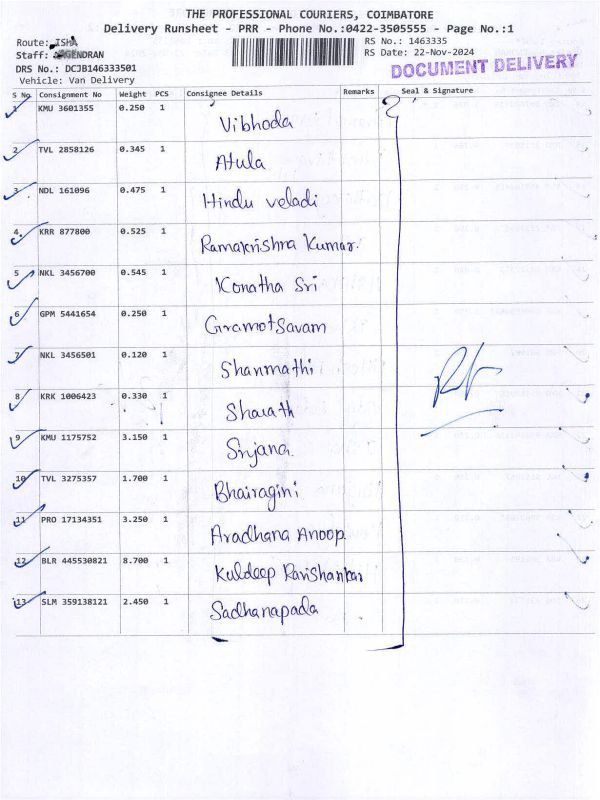 THE PROFESSIONAL COURIERS, COIMBATORE
Delivery Runsheet - PRR - Phone No.:0422-3505555 - Page No.:1
Route: ISHA
RS No.: 1463335
Staff: GENDRAN
RS Date: 22-Nov-2024
DOCUMENT DELIVERY
DRS No.: DCJB146333501
Vehicle: Van Delivery
S No. Consignment No Weight PCS Consignee Details Remarks Seal & Signature
1 KMU 3601355 0.250 1 Vibhoda
2 TVL 2858126 0.345 1 Atula
3 NDL 161096 0.475 1 Hindu veladi
4 KRR 877800 0.525 1 Ramakrishna Kumar.
5 NKL 3456700 0.545 1 Konatha Sri
6 GPM 5441654 0.250 1 GramotSavam
7 NKL 3456501 0.120 1 Shanmathi
8 KRK 1006423 0.330 1 Sharath
9 KMU 1175752 3.150 1 Srijana.
10 TVL 3275357 1.700 1 Bhairagini
11 PRO 17134351 3.250 1 Aradhana Anoop
12 BLR 445530821 8.700 1 Kuldeep Ravishankar
13 SLM 359138121 2.450 1 Sadhanapada